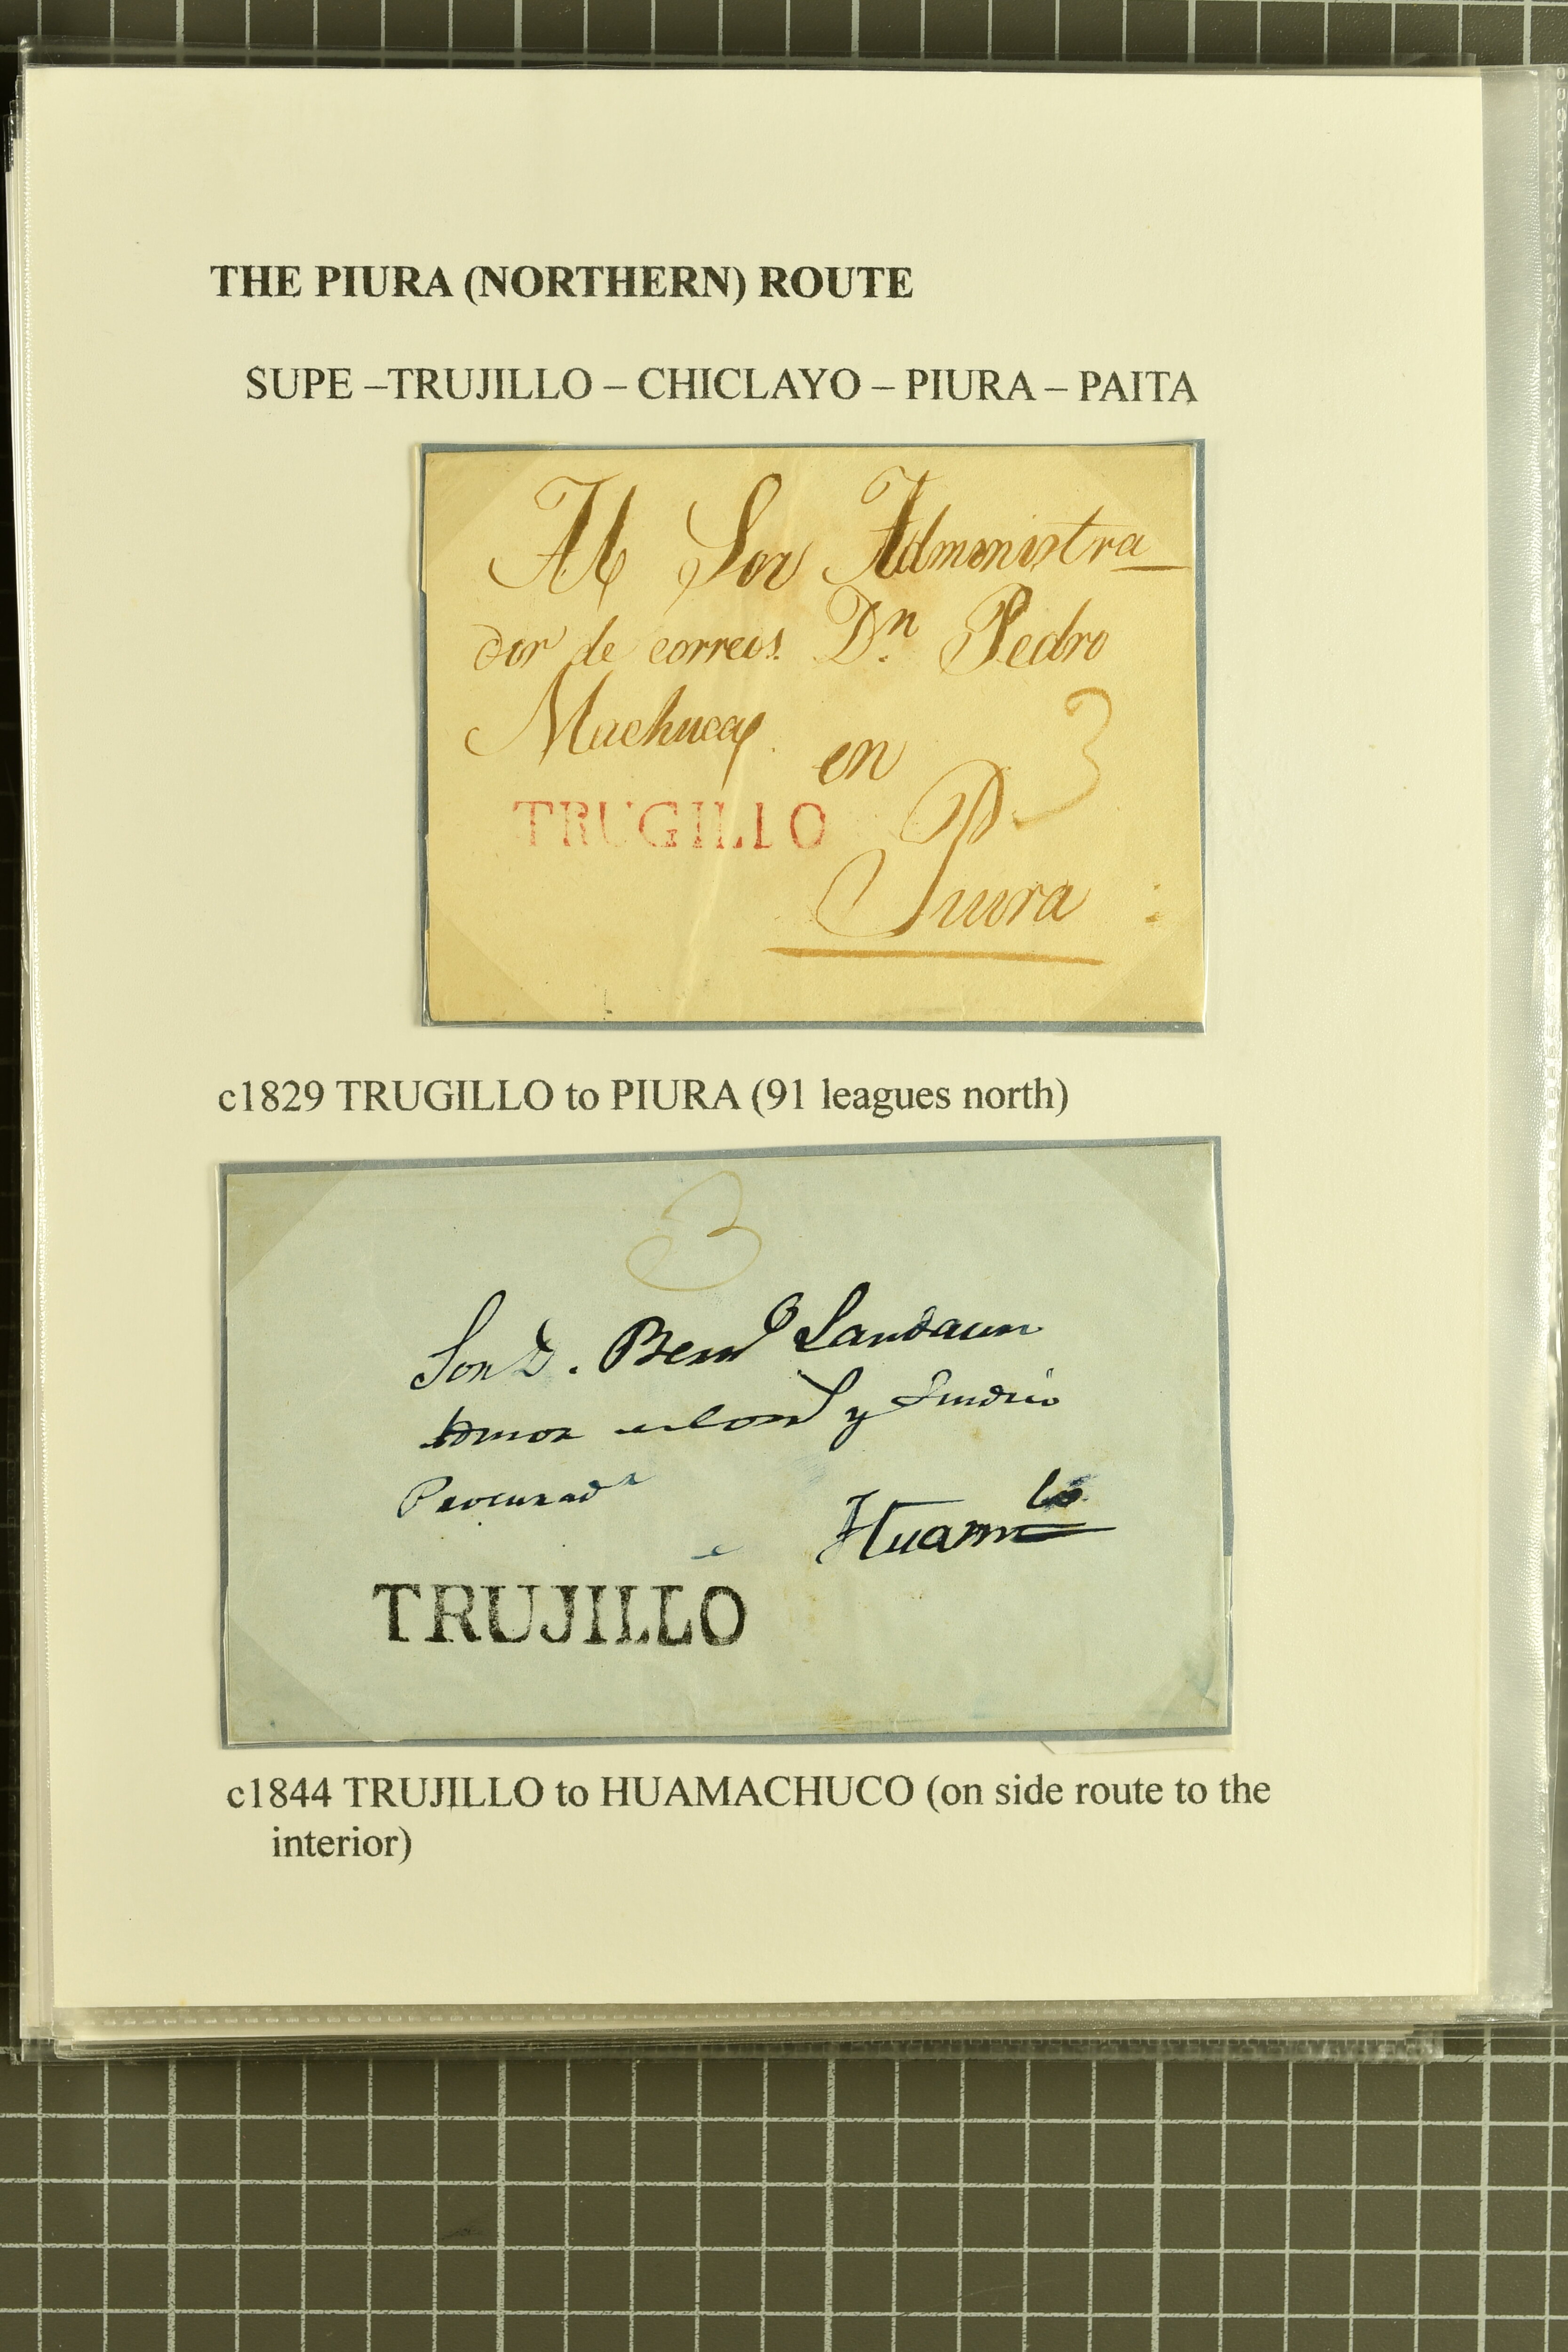 THE PIURA (NORTHERN) ROUTE
SUPE –TRUJILLO – CHICLAYO – PIURA – PAITA
Al Sor Administra
dor de correos. Dn. Pedro
Machuca
en
3
TRUGILLO
Piura
c1829 TRUGILLO to PIURA (91 leagues north)
3
Sor D. Bern
y Sindico
Procurador
Huam co
TRUJILLO
c1844 TRUJILLO to HUAMACHUCO (on side route to the
interior)